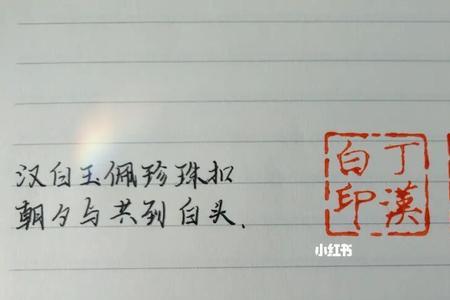 汉白玉佩珍珠扣
朝夕与共到白头.
丁漢
白印
小红书